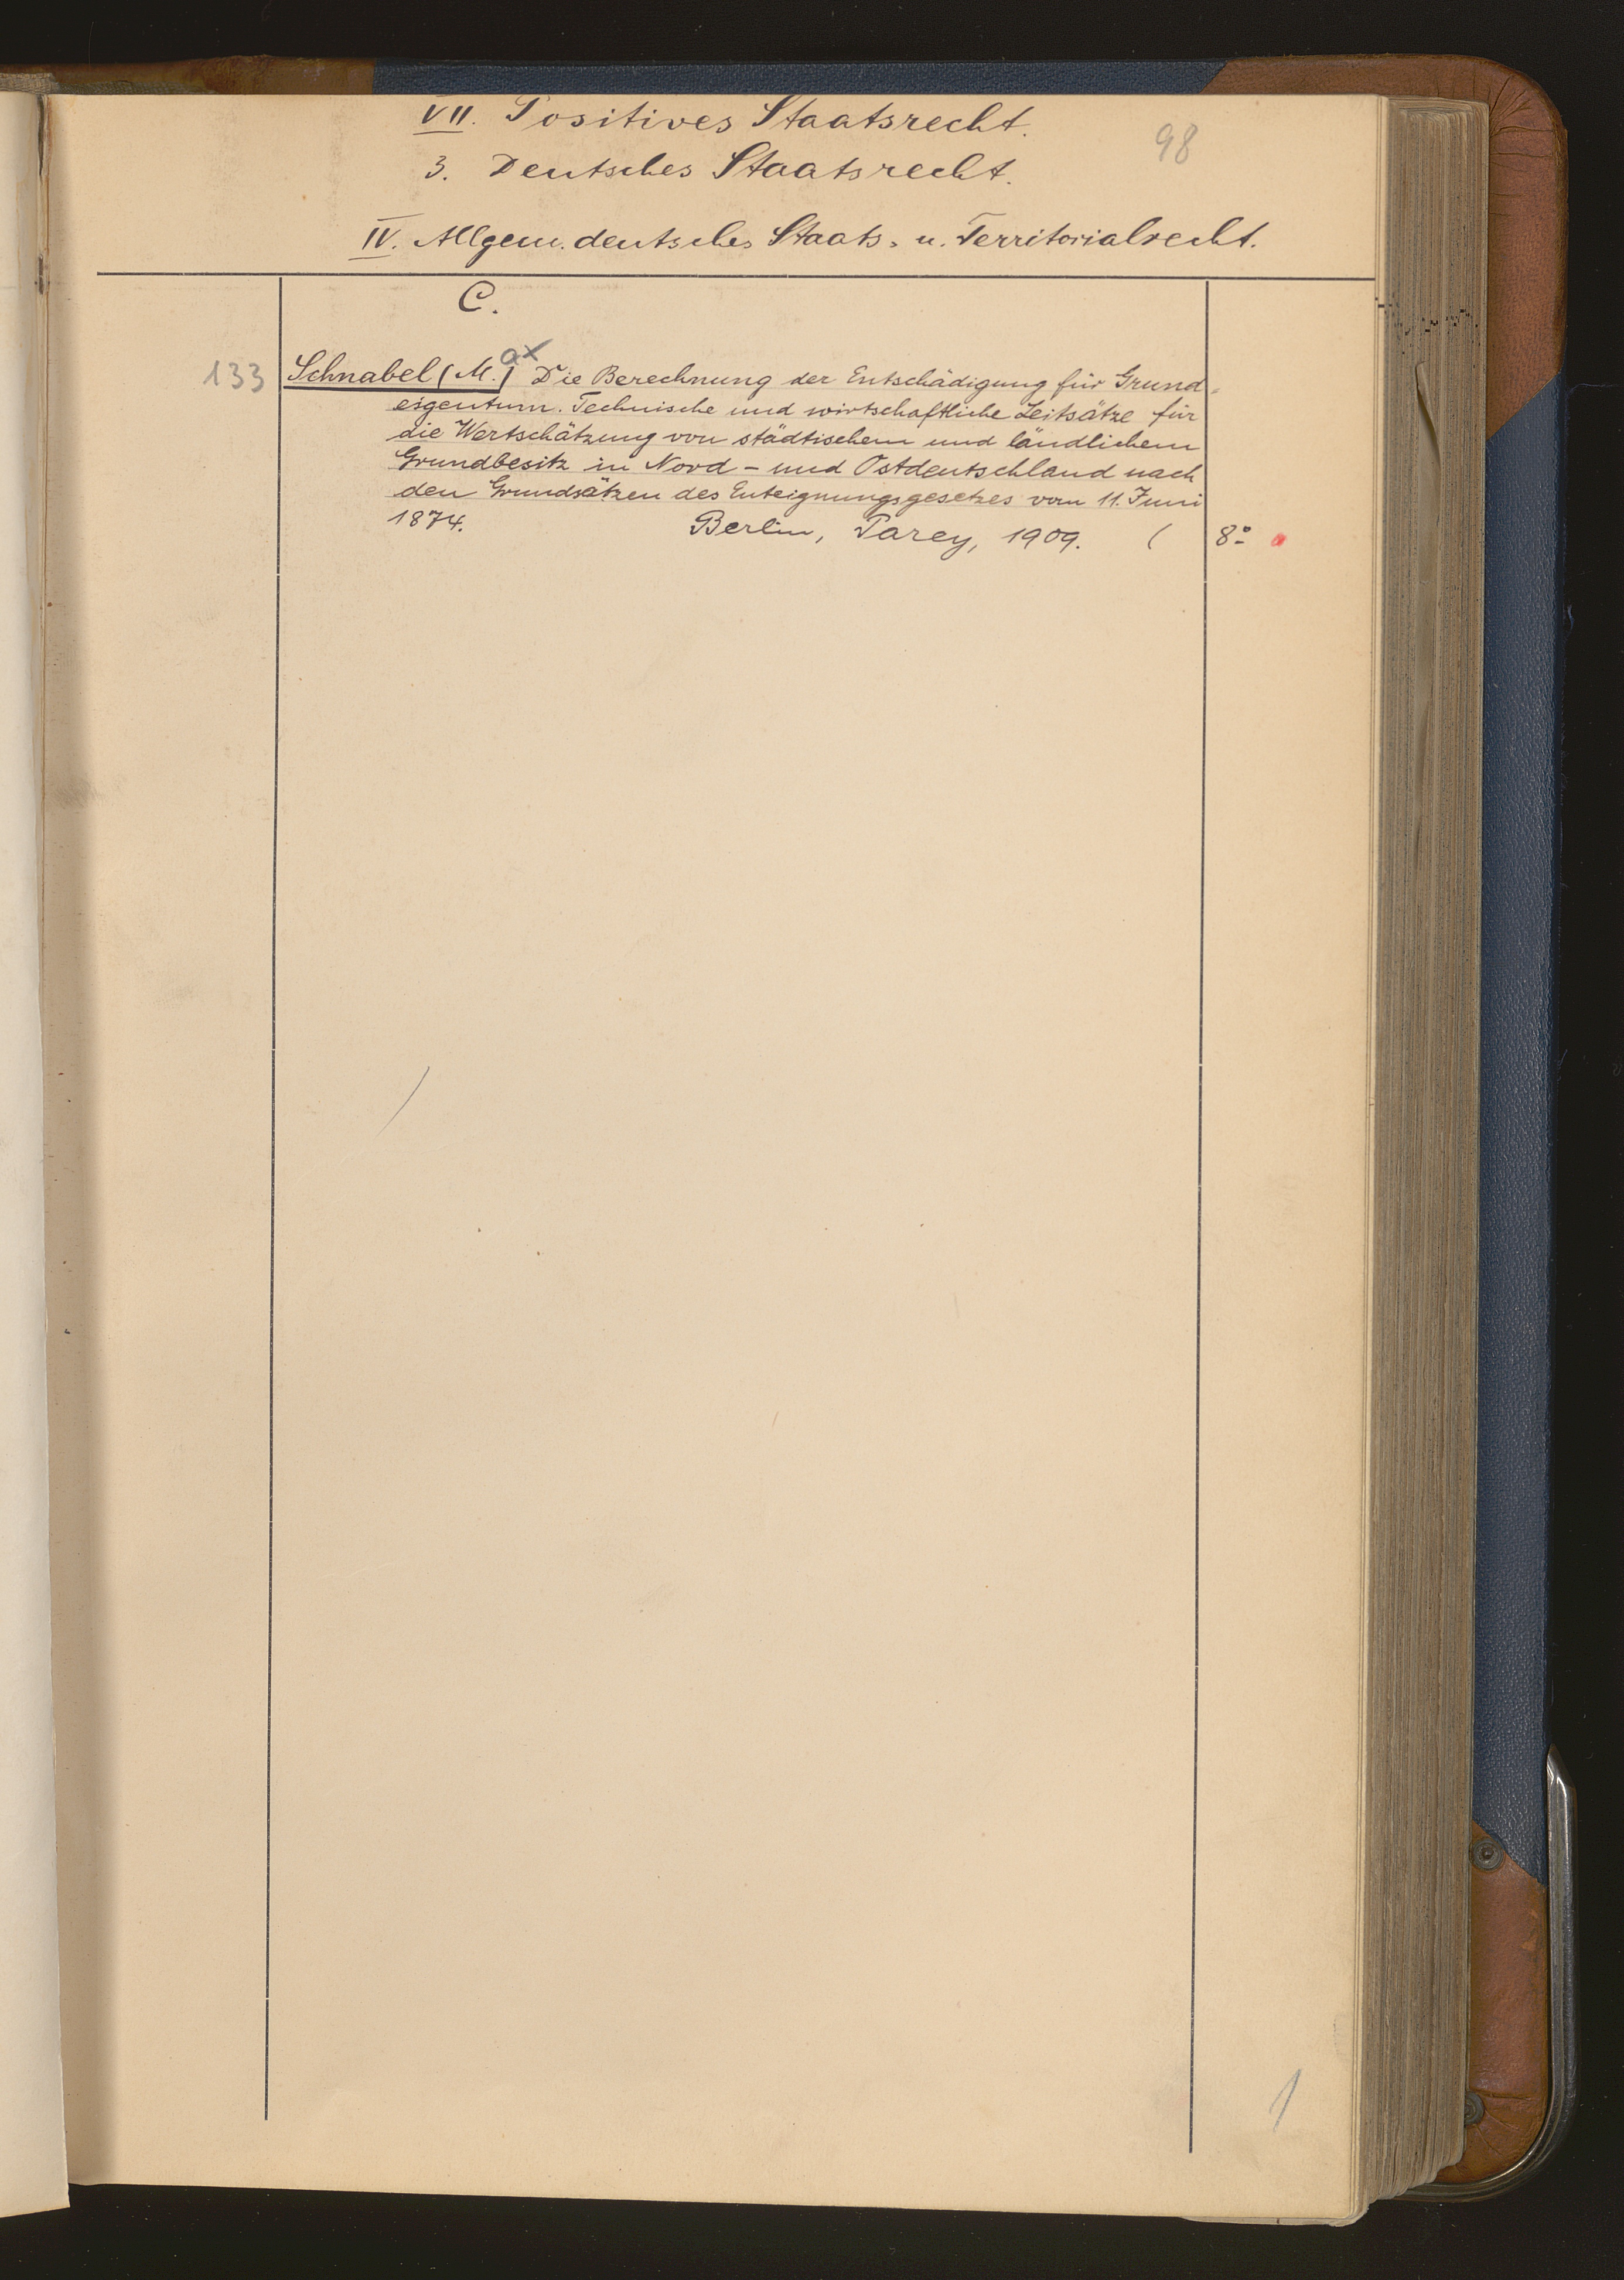 VII. Positives Staatsrecht.
98
3. Deutsches Staatsrecht.
IV. Allgem. deutsches Staats- u. Territorialrecht.
C.
133 Schnabel (M.) ax Die Berechnung der Entschädigung für Grund-
eigentum. Technische und wirtschaftliche Leitsätze für
die Wertschätzung von städtischem und ländlichem
Grundbesitz in Nord- und Ostdeutschland nach
den Grundsätzen des Enteignungsgesetzes vom 11. Juni
1874. Berlin, Parey, 1909. ( 8º
1